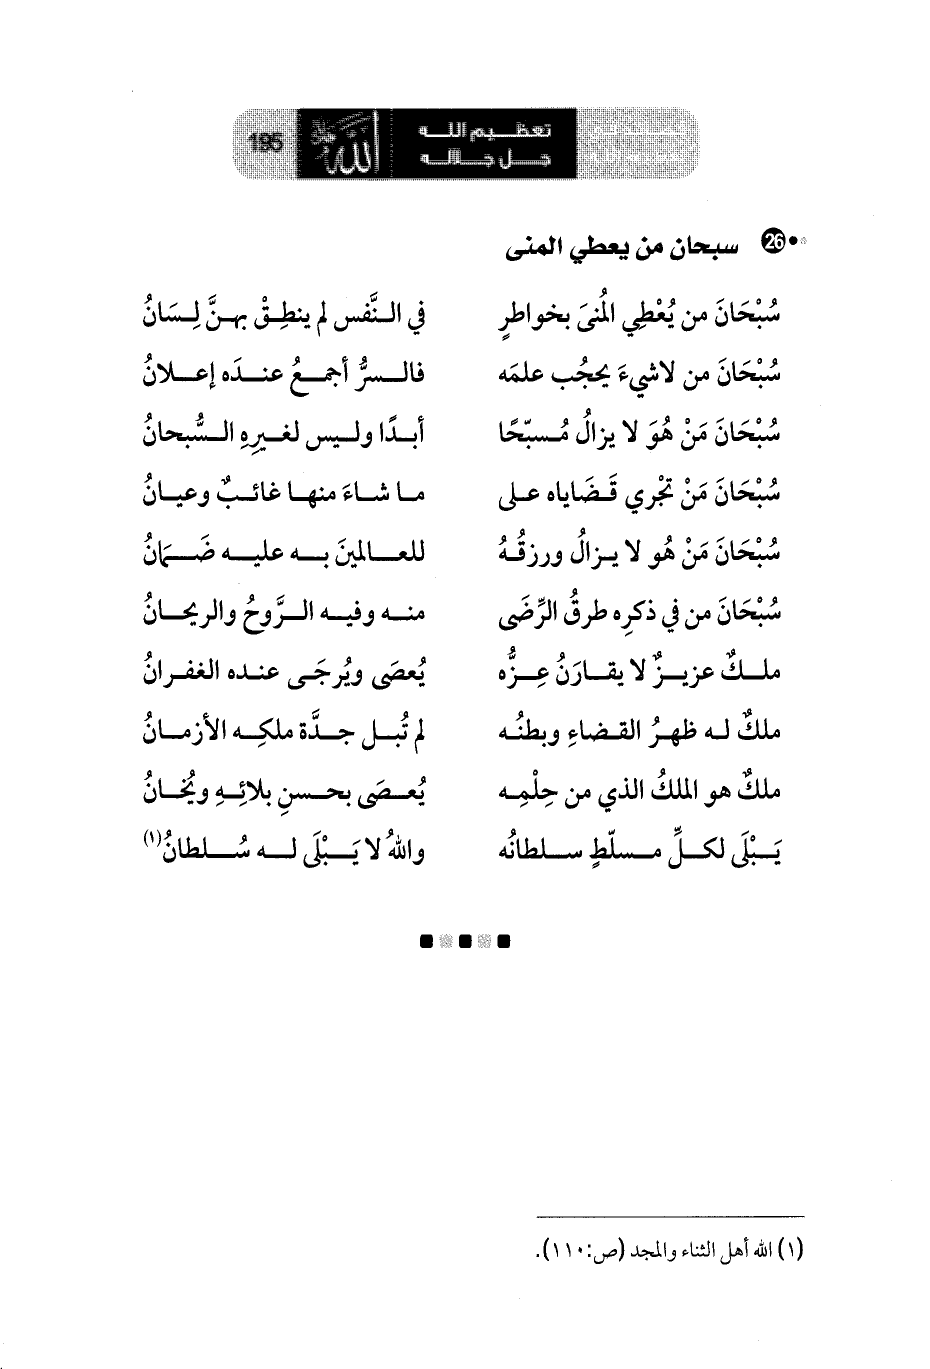 195
تعظيم الله
جل جلاله
26 سبحان من يعطي المنى
سُبْحَانَ من يُعْطِي المُنىَ بخواطرٍ في النَّفس لم ينطِقْ بهنَّ لِسَانُ
سُبْحَانَ من لاشيءَ يحجُب علمَه فالسرُّ أجمعُ عندَه إعلانُ
سُبْحَانَ مَنْ هُوَ لا يزالُ مُسبّحًا أبدًا وليس لغيرِهِ السُّبحانُ
سُبْحَانَ مَنْ تَجْري قَضَاياه على ما شاءَ منها غائبٌ وعيانُ
سُبْحَانَ مَنْ هُو لا يزالُ ورزقُهُ للعالمينَ به عليه ضَمَانُ
سُبْحَانَ من في ذكرِه طرقُ الرِّضَى منه وفيه الرَّوحُ والريحانُ
ملكٌ عزيزٌ لا يقارَنُ عِزُّه يُعصَى ويُرجَى عنده الغفرانُ
ملكٌ له ظهرُ القضاءِ وبطنُه لم تُبل جدَّة ملكِه الأزمانُ
ملكٌ هو الملكُ الذي من حِلْمِه يُعصَى بحسنِ بلائِهِ ويُخانُ
يَبْلَى لكلِّ مسلّطٍ سلطانُه واللهُ لا يَبْلَى له سُلطانُ(١)
(١) الله أهل الثناء والمجد (ص:١١٠).